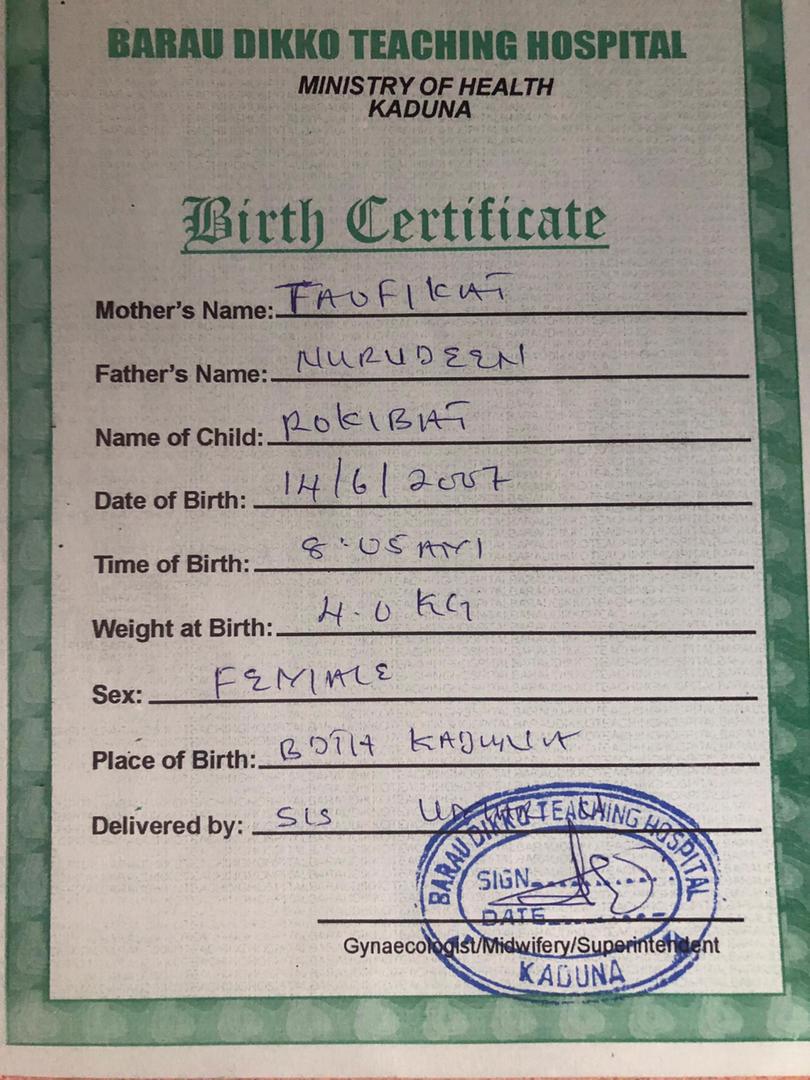 BARAU DIKKO TEACHING HOSPITAL
MINISTRY OF HEALTH
KADUNA
Birth Certificate
Mother's Name: TAUFIKAT
Father's Name: NURUDEEN
Name of Child: ROKIBAT
Date of Birth: 14/6/2007
Time of Birth: 8:05 AM
Weight at Birth: 4.0 KG
Sex: FEMALE
Place of Birth: BDTH KADUNA
Delivered by: SIS
BARAU DIKKO TEACHING HOSPITAL
SIGN
DATE
Gynaecologist/Midwifery/Superintendent
KADUNA